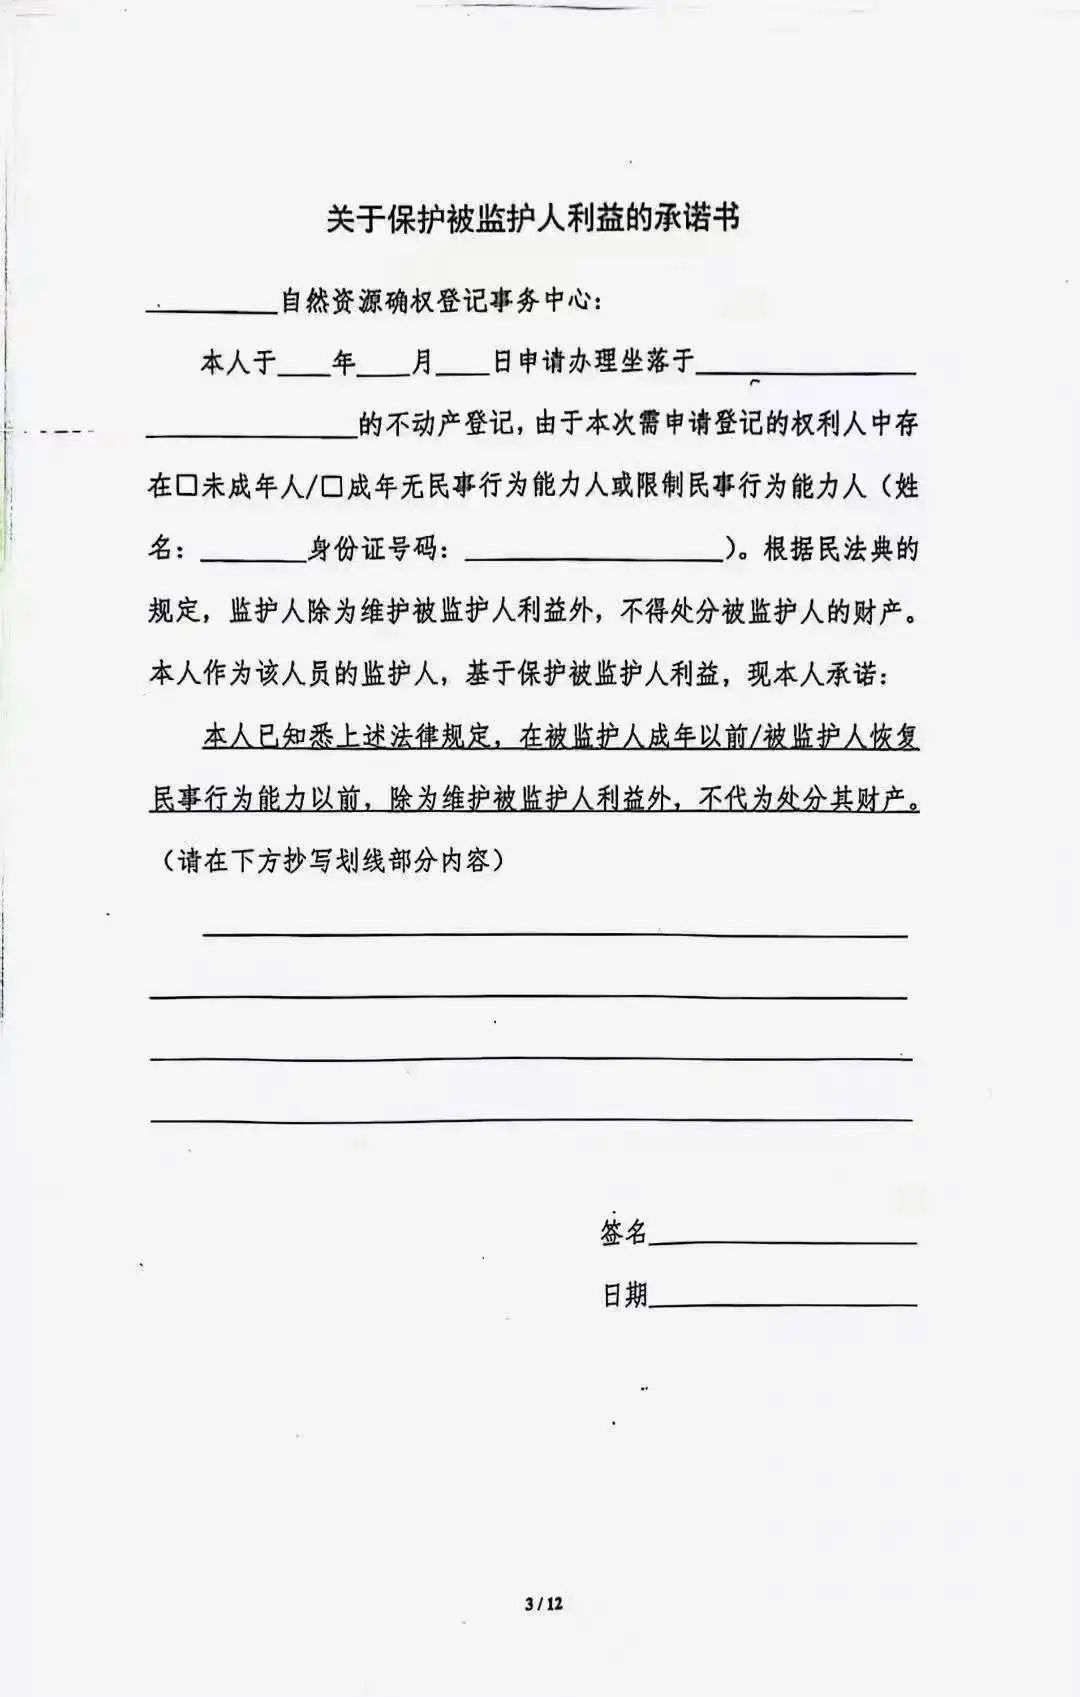 关于保护被监护人利益的承诺书
________自然资源确权登记事务中心：
本人于____年____月____日申请办理坐落于________________
________________的不动产登记，由于本次需申请登记的权利人中存
在□未成年人/□成年无民事行为能力人或限制民事行为能力人（姓
名：________身份证号码：____________________）。根据民法典的
规定，监护人除为维护被监护人利益外，不得处分被监护人的财产。
本人作为该人员的监护人，基于保护被监护人利益，现本人承诺：
本人已知悉上述法律规定，在被监护人成年以前/被监护人恢复
民事行为能力以前，除为维护被监护人利益外，不代为处分其财产。
（请在下方抄写划线部分内容）
签名____________________
日期____________________
3 / 12